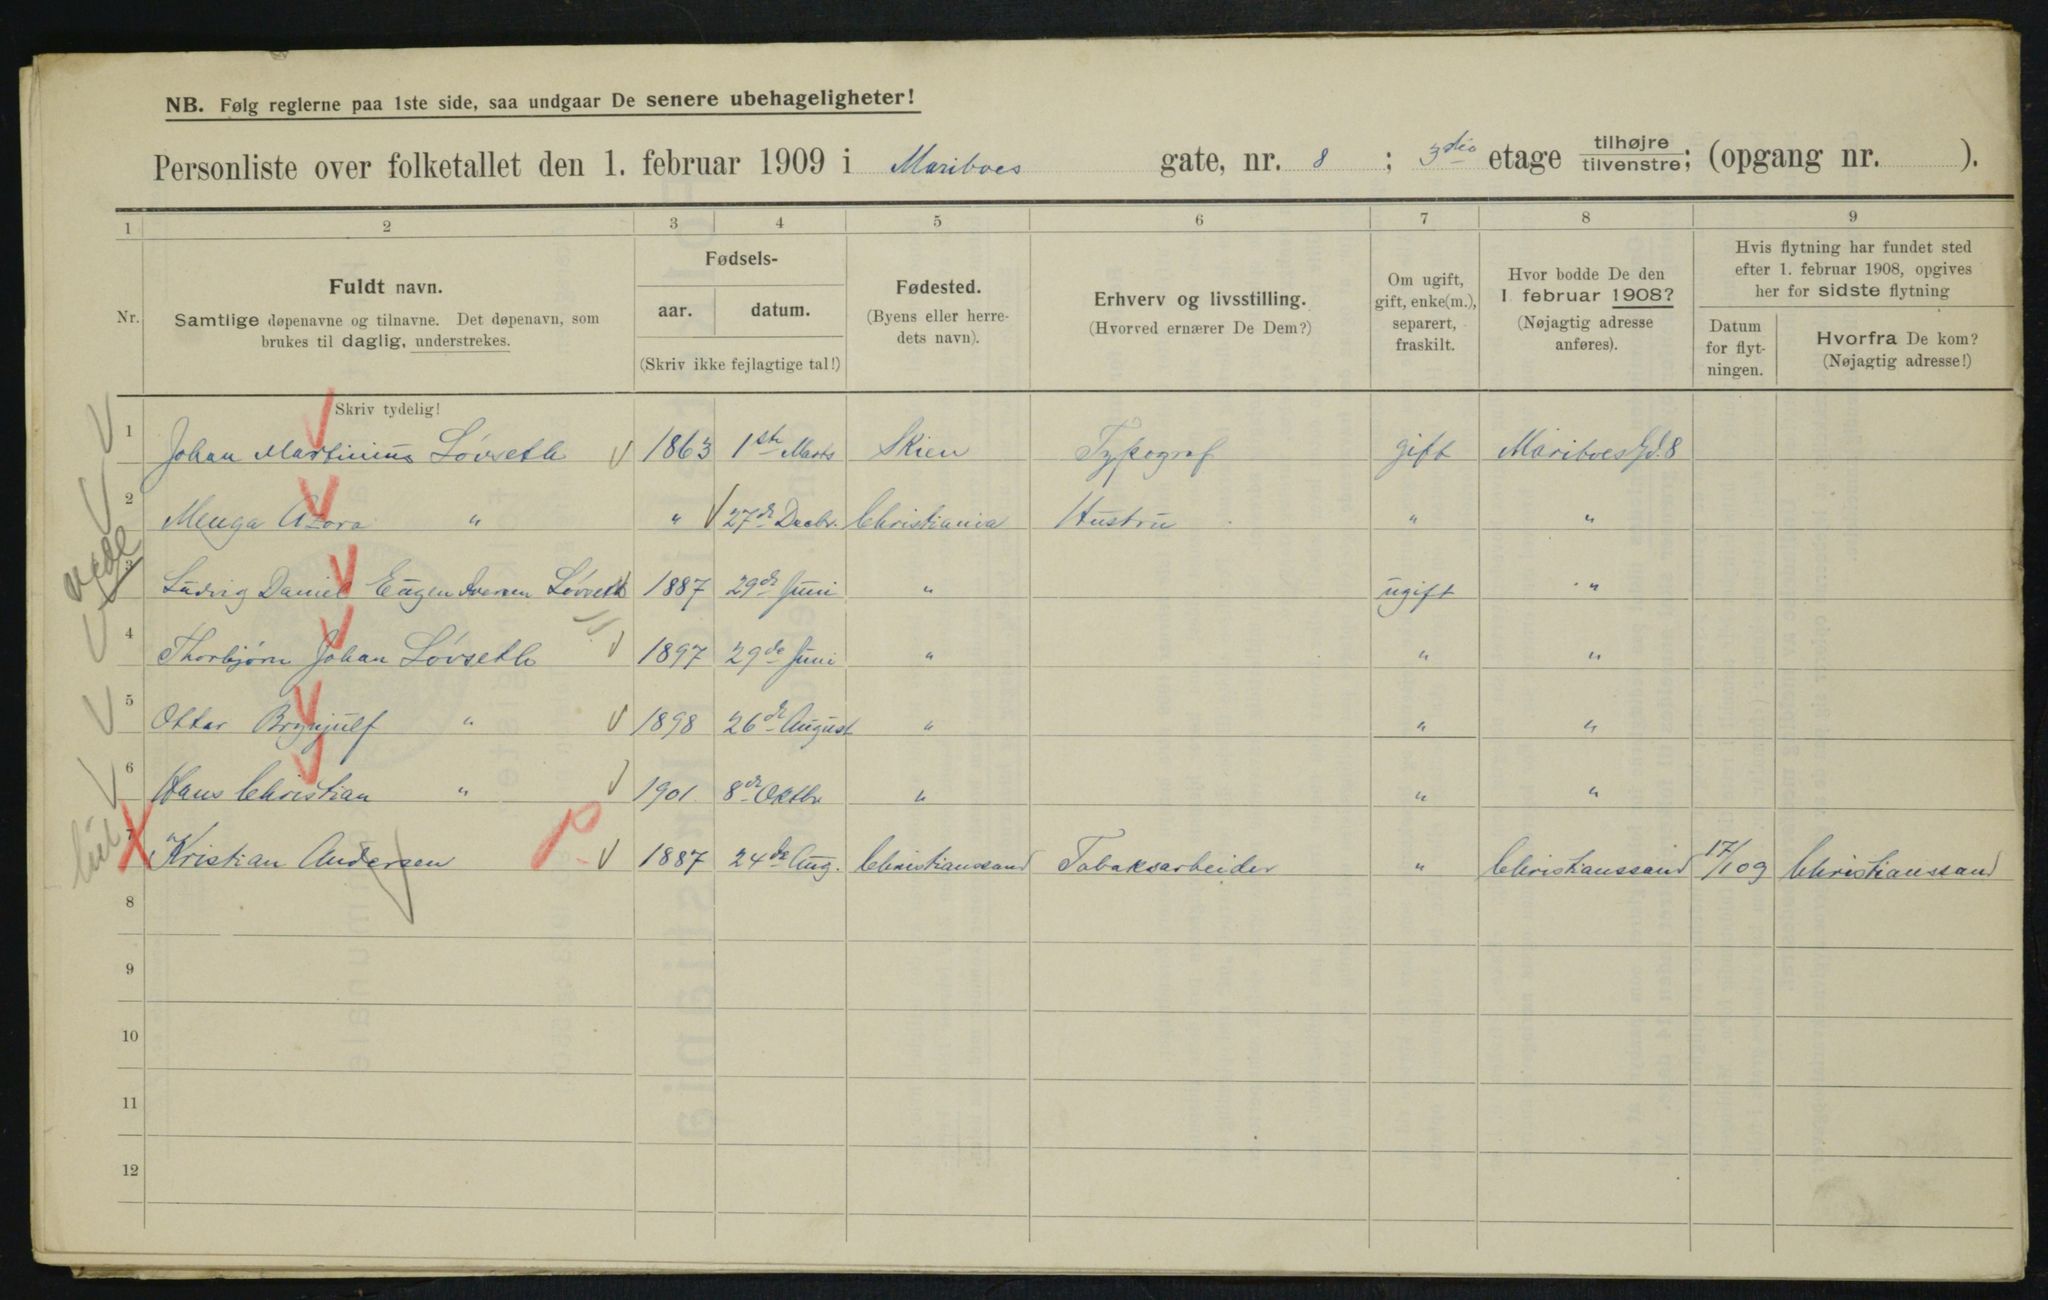 NB. Følg reglerne paa 1ste side, saa undgaar De senere ubehageligheter!
Personliste over folketallet den 1. februar 1909 i Mariboes gate, nr. 8 ; 3die etage tilhøjre/tilvenstre; (opgang nr. ).
1 2 3 4 5 6 7 8 9
Nr.
Fuldt navn.
Samtlige døpenavne og tilnavne. Det døpenavn, som
brukes til daglig, understrekes.
Fødsels-
aar. datum.
(Skriv ikke fejlagtige tal!)
Fødested.
(Byens eller herre-
dets navn).
Erhverv og livsstilling.
(Hvorved ernærer De Dem?)
Om ugift,
gift, enke(m.),
separert,
fraskilt.
Hvor bodde De den
1 februar 1908?
(Nøjagtig adresse
anføres).
Hvis flytning har fundet sted
efter 1. februar 1908, opgives
her for sidste flytning
Datum
for flyt-
ningen.
Hvorfra De kom?
(Nøjagtig adresse!)
Skriv tydelig!
1 Johan Martinius Løvseth 1863 1ste Marts Skien Typograf gift Mariboes Gd. 8
2 Menga Azora " " 27de Decbr. Christiania Hustru " "
3 Ludvig Daniel Eugen Iversen Løvseth 1887 29de Juni " ugift "
4 Thorbjørn Johan Løvseth 1897 29de Juni " " "
5 Ottar Brynjulf " 1898 26de August " " "
6 Hans Christian " 1901. 8de Oktbr " " "
7 Kristian Andersen 1887 24de Aug. Christianssand Tobaksarbeider " Christianssand 17/1 09 Christianssand
8
9
10
11
12